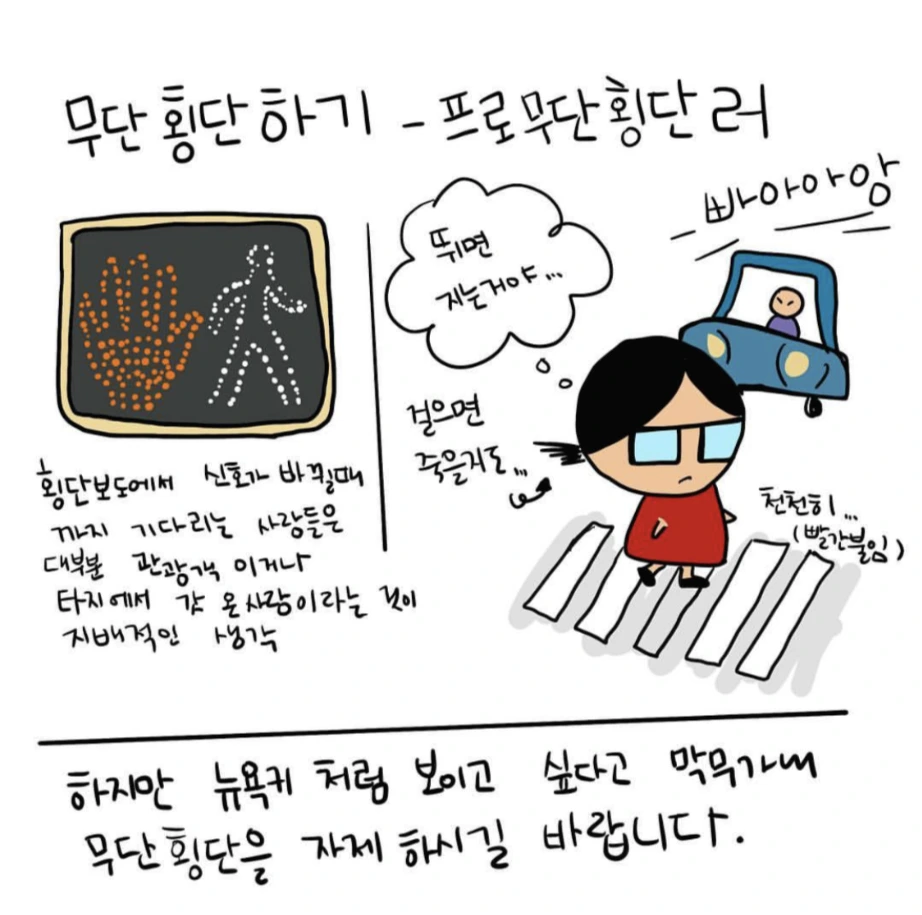 무단횡단하기 - 프로무단횡단러
횡단보도에서 신호가 바뀔때
까지 기다리는 사람들은
대부분 관광객 이거나
타지에서 갓 온사람이라는 것이
지배적인 생각
뛰면
지는거야...
빠아아앙
걸으면
죽을지도...
천천히...
(빨간불임)
하지만 뉴욕커 처럼 보이고 싶다고 막무가내
무단횡단을 자제 하시길 바랍니다.